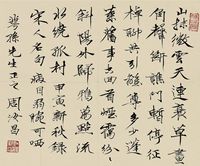 山抹微雲天連衰草畫
角聲斷譙門暫停征
棹聊共引離尊多少蓬
萊舊事空回首煙靄紛紛
斜陽外鴉點流
水繞孤村甲寅新秋錄
宋人名句病目弱腕可哂
孫先生正之周汝昌